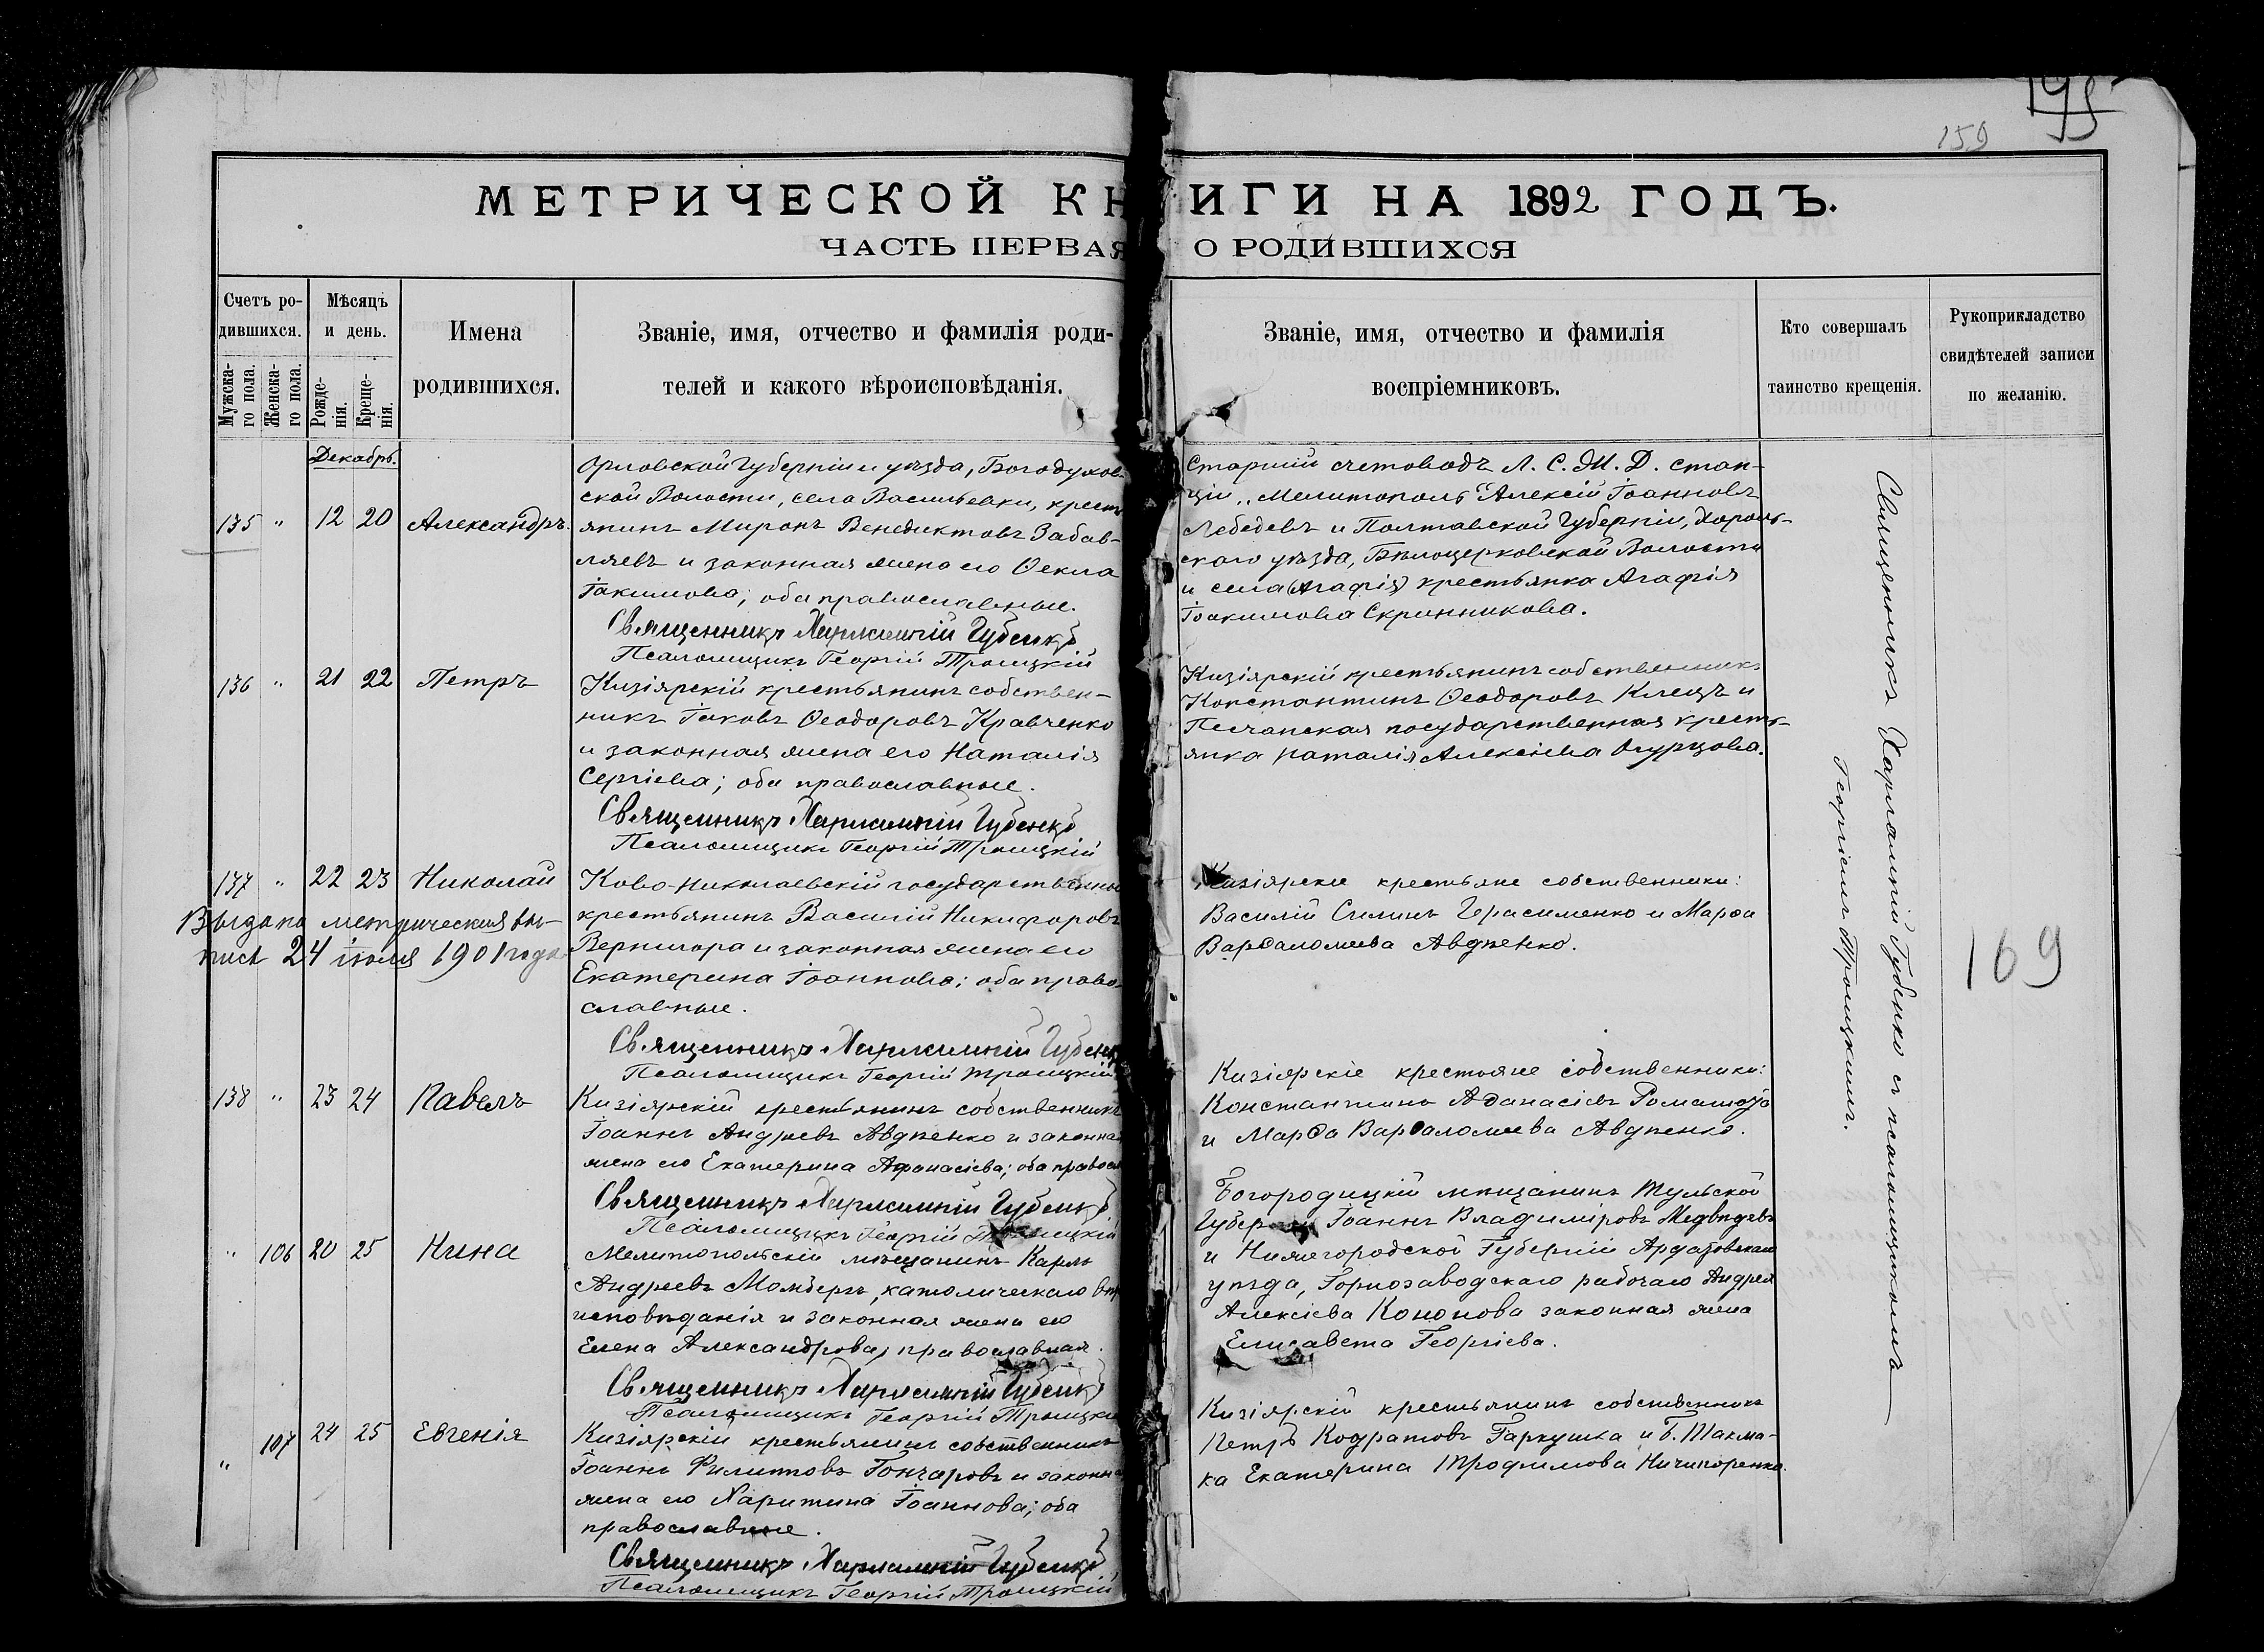 195
159
МЕТРИЧЕСКОЙ КНИГИ НА 1892 ГОДЪ.
ЧАСТЬ ПЕРВАЯ О РОДИВШИХСЯ
Счетъ ро-
дившихся.
Мужска-
го пола.
Женска-
го пола.
Мѣсяцъ
и день.
Рожде-
нія.
Креще-
нія.
Имена
родившихся.
Званіе, имя, отчество и фамилія роди-
телей и какого вѣроисповѣданія.
Званіе, имя, отчество и фамилія
воспріемниковъ.
Кто совершалъ
таинство крещенія.
Рукоприкладство
свидѣтелей записи
по желанію.
Декабрь.
135 " 12 20 Александръ.
Орловской Губерніи и уѣзда, Богодухов-
ской Волости, села Васильевки, кресть-
янинъ Миронъ Венедиктовъ Забав-
ляевъ и законная жена его Ѳекла
Іакимова; оба православные.
Священникъ Харлампій Губенко
Псаломщикъ Георгій Троицкій
Старшій счетоводъ Л. С. Ж. Д. стан-
ціи „Мелитополь“ Алексій Іоанновъ
Лебедевъ и Полтавской Губерніи, Хороль-
скаго уѣзда, Бѣлоцерковской Волости
и села (Агафія) крестьянка Агафія
Іоакимова Скринникова.
136 " 21 22 Петръ
Кизіярскій крестьянинъ собствен-
никъ Іаковъ Ѳеодоровъ Кравченко
и законная жена его Наталія
Сергіева; оба православные.
Священникъ Харлампій Губенко
Псаломщикъ Георгій Троицкій
Кизіярскій крестьянинъ собственникъ
Константинъ Ѳеодоровъ Клещъ и
Песчанская государственная кресть-
янка Наталія Алексіева Огурцова.
137 " 22 23 Николай
Выдана метрическая вы-
пись 24 іюля 1901 года
Ново-Николаевскій государственный
крестьянинъ Василій Никифоровъ
Вернигора и законная жена его
Екатерина Іоаннова; оба право-
славные.
Священникъ Харлампій Губенко
Псаломщикъ Георгій Троицкій
Кизіярскіе крестьяне собственники:
Василій Силинъ Герасименко и Марѳа
Варѳаломеева Авдѣенко.
138 " 23 24 Павелъ
Кизіярскій крестьянинъ собственникъ
Іоаннъ Андреевъ Авдѣенко и законная
жена его Екатерина Афанасіева; оба правосл
Священникъ Харлампій Губенко
Псаломщикъ Георгій Троицкій
Кизіярскіе крестьяне собственники:
Константинъ Аѳанасіевъ
и Марѳа Варѳаломеева Авдѣенко.
" 106 20 25 Нина
Мелитопольскій мѣщанинъ Карлъ
Андреевъ Момбергъ, католическаго вѣро
исповѣданія и законная жена его
Елена Александрова, православная.
Священникъ Харлампій Губенко
Псаломщикъ Георгій Троицкій
Богородицкій мѣщанинъ Тульской
Губерніи Іоаннъ Владиміровъ Медвѣдевъ
и Нижегородской Губерніи Ардатовскаго
уѣзда, Горнозаводскаго рабочаго Андрея
Алексіева Кононова законная жена
Елисавета Георгіева.
" 107 24 25 Евгенія
Кизіярскій крестьянинъ собственникъ
Іоаннъ Филипповъ Гончаровъ и законная
жена его Харитина Іоаннова; оба
православные.
Священникъ Харлампій Губенко
Псаломщикъ Георгій Троицкій
Кизіярскій крестьянинъ собственникъ
Петръ Кодратовъ Гаркушка и Б. Токма-
ка Екатерина Трофимова Ничипоренко.
Священникъ Харлампій Губенко съ псаломщикомъ
Георгіемъ Троицкимъ.
169